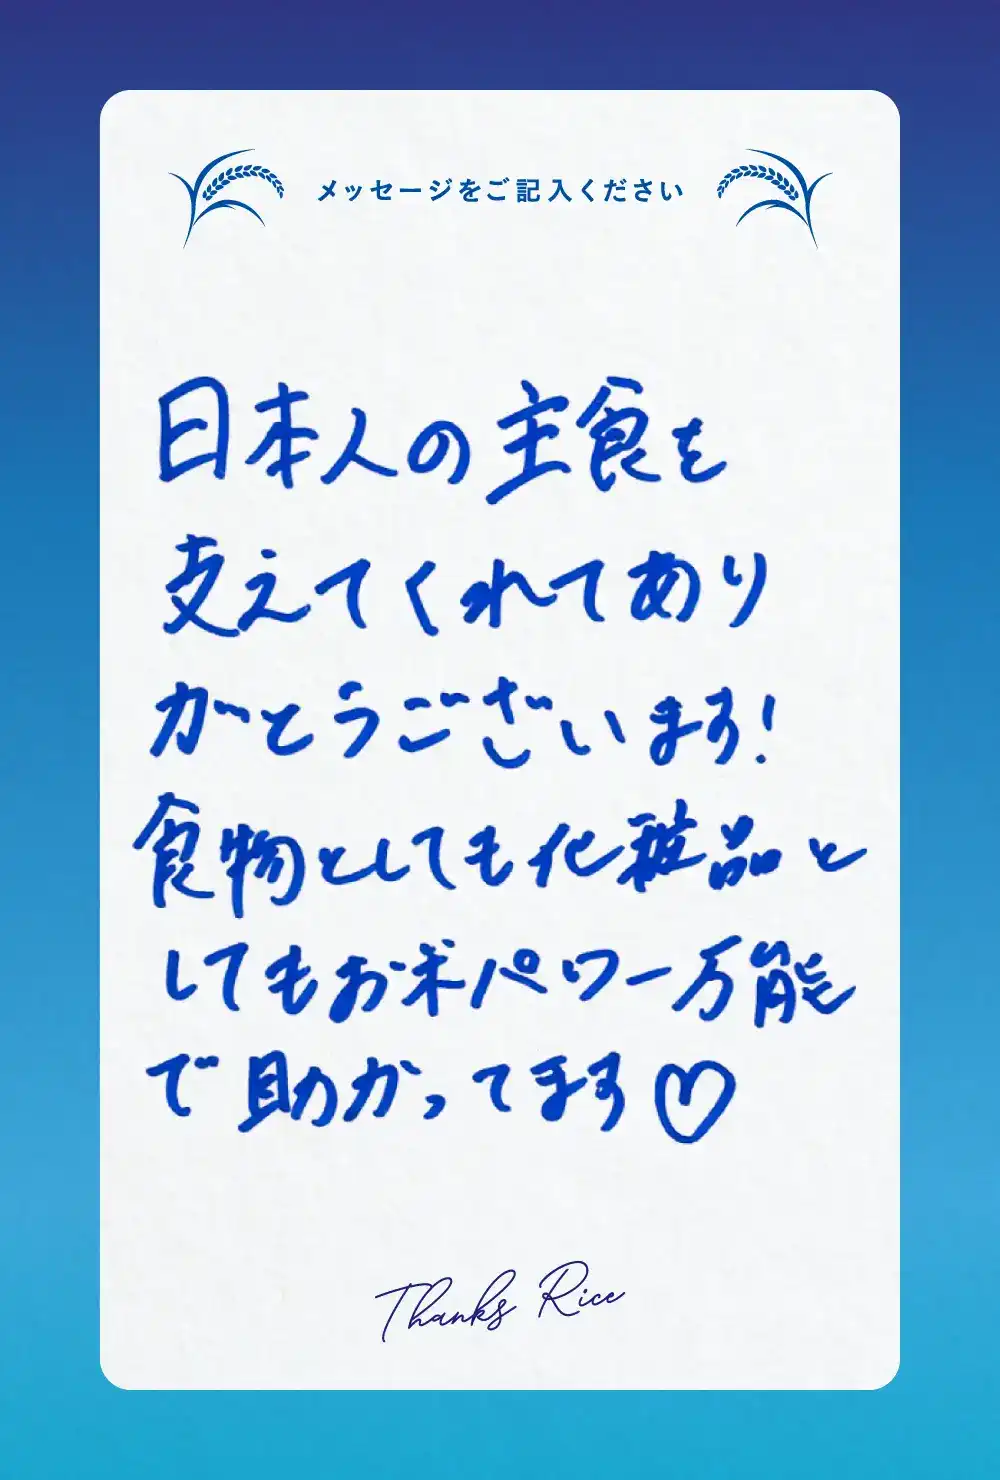 メッセージをご記入ください
日本人の主食を
支えてくれてあり
がとうございます!
食物としても化粧品と
してもお米パワー万能
で助かってます♡
Thanks Rice